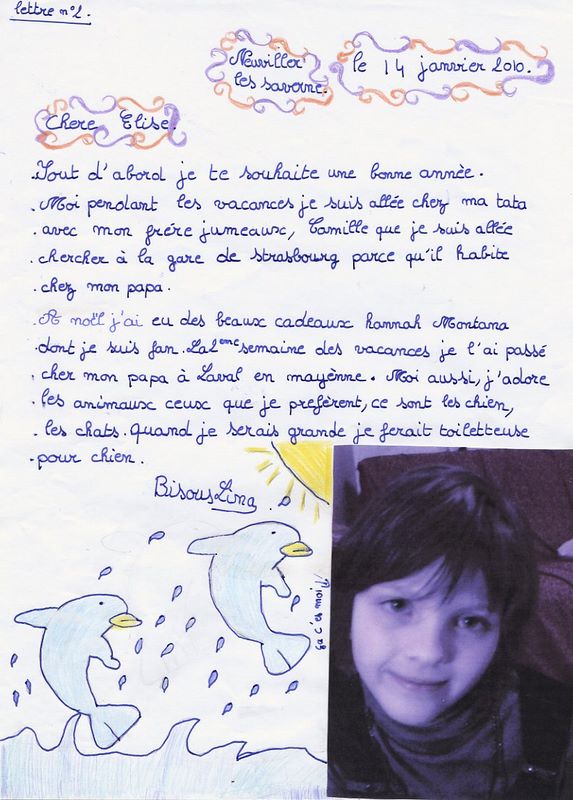 lettre n°2.
Neuviller les saverne.
le 14 janvier 2010.
Chere Elise.
.Tout d'abord je te souhaite une bonne annèe.
.Moi pendant les vacances je suis allée chez ma tata
.avec mon frére jumeaux, Camille que je suis allée
.chercher à la gare de strasbourg parce qu'il habite
.chez mon papa.
.A noël j'ai eu des beaux cadeaux hannah Montana
.dont je suis fan. La 2ème semaine des vacances je l'ai passé
.cher mon papa à Laval en mayènne. Moi aussi, j'adore
.les animaux ceux que je prefèrent, ce sont les chien,
.les chats. Quand je serais grande je ferait toiletteuse
.pour chien.
Bisous Lina.
ça c'est moi!